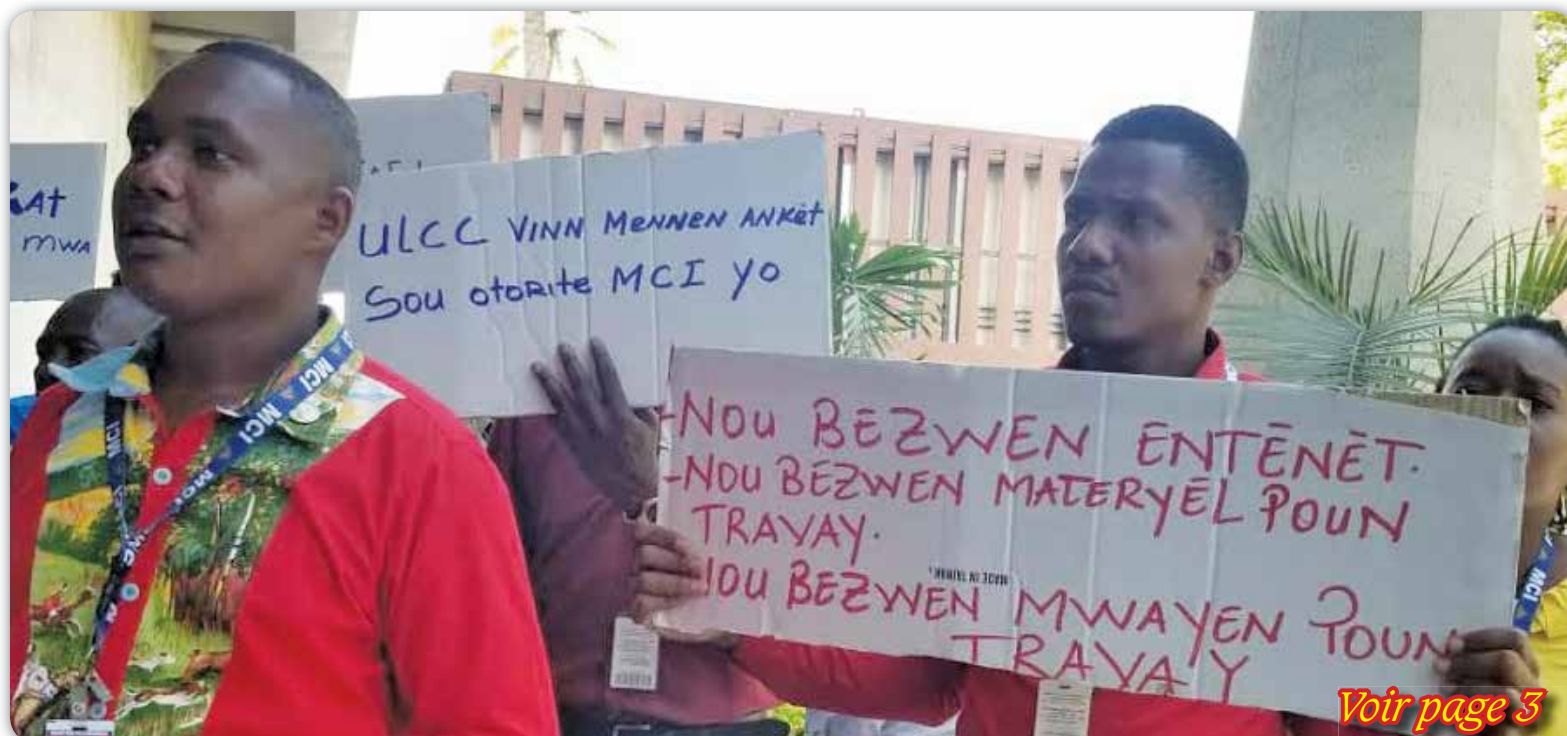 KAT
MWA
ULCC VINN MENNEN ANKèt
SOU OtORIte MCI YO
-NOU BEZWEN ENTÈNÈT.
-NOU BEZWEN MATERYÈL POUN
TRAVAY.
NOU BEZWEN MWAYEN POUN
TRAVAY
MADE IN TAIWAN
MCI
MCI
MCI
MCI
MCI
Voir page 3